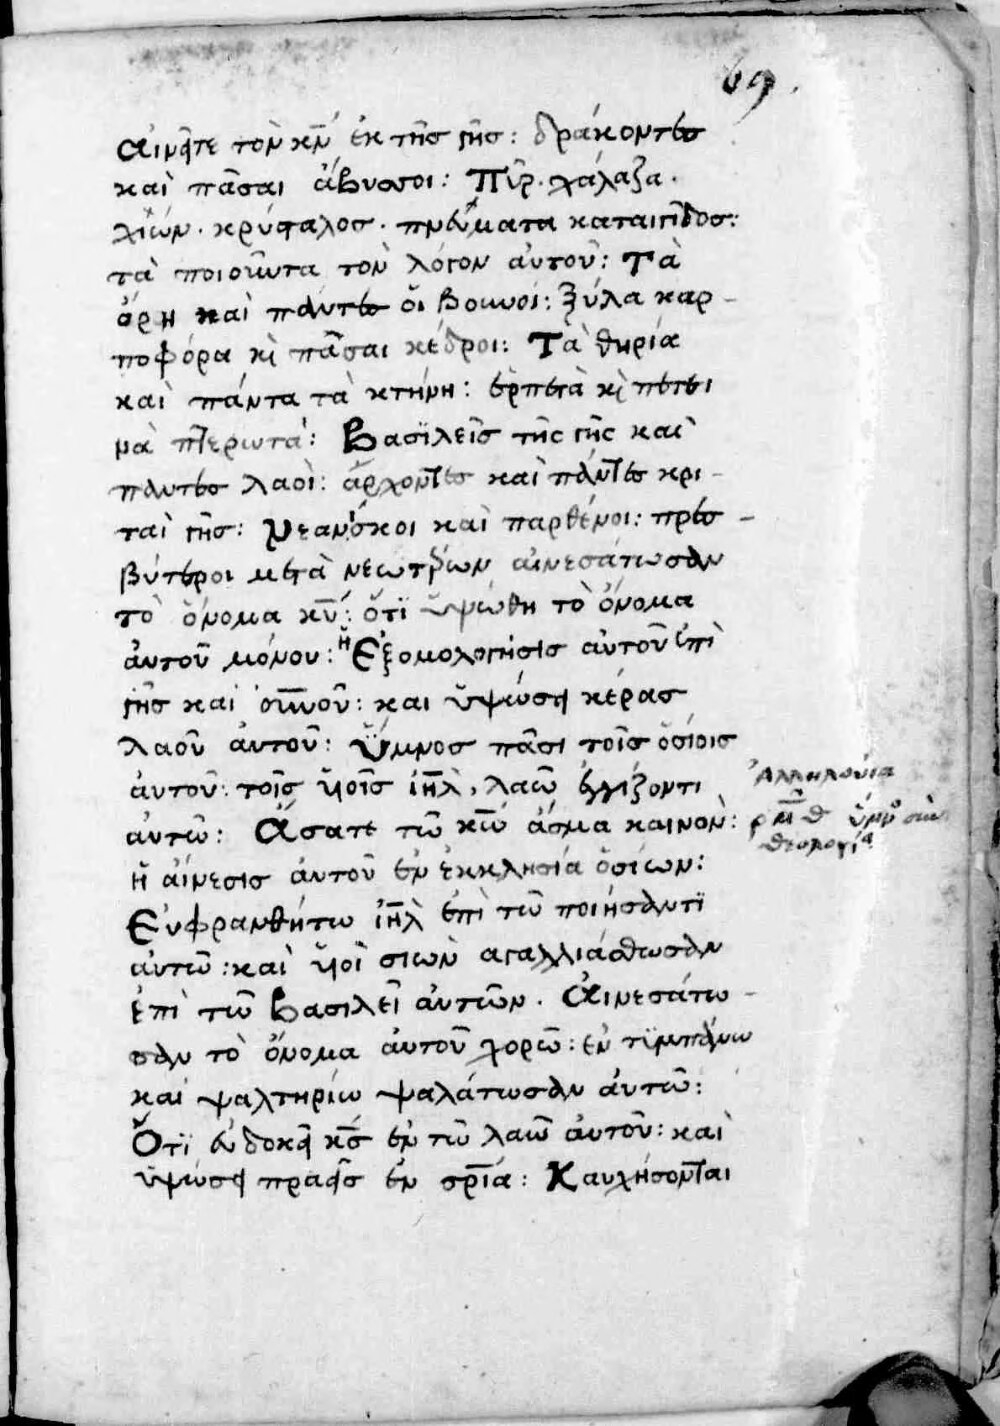 69.
αἰνεῖτε τὸν κ̅ν̅ ἐκ τῆς γῆς: δράκοντες
καὶ πᾶσαι ἄβυσσοι: Πῦρ. χάλαζα.
χιών. κρύσταλος. πνεύματα καταιγίδος:
τὰ ποιοῦντα τὸν λόγον ἀυτοῦ: Τὰ
ὄρη καὶ πάντες ὅι βουνοί: Ξύλα καρ-
ποφόρα κ̀ πᾶσαι κέδροι: Τὰ θηρία
καὶ πάντα τὰ κτήνη: ἑρπετὰ κ̀ πετει
νὰ πτερωτά: Βασϊλεῖς τῆς γῆς καὶ
παντες λαοὶ: ἄρχοντες καὶ πάντες κρι-
ταὶ γῆς: Νεανίσκοι καὶ παρθένοι: πρεσ-
βύτεροι μετὰ νεωτέρων αἰνεσάτωσαν
τὸ ὄνομα κ̅υ̅: ὅτϊ ὑψώθη τὸ ὄνομα
ἀυτοῦ μόνου: ἡ Ἐξομολογησις αὐτοῦ ἐπὶ
γῆς καὶ ὀυ̅νοῦ: και ὑψώσει κέρας
λαοῦ ἀυτοῦ: Ὕμνος πᾶσι τοῖς ὁσίοις
ἀυτοῦ: τοῖς ὑιοῖς ἰη̅λ, λαῶ ἐγγίζοντι
αὐτῶ: Ἄσατε τῶ κ̅ω̅ ἄσμα καινὸν:
ἡ αἴνεσις ἀυτοῦ ἐν ἐκκλησία ὁσίων:
Ἐυφρανθήτω ἰη̅λ ἐπὶ τῶ ποιήσαντϊ
ἀυτῶ: καὶ ὑιοὶ σιὼν ἀγαλλιάσθωσαν
ἐπὶ τῶ Βασιλεῖ ἀυτῶν. Ἀινεσάτω-
σαν τὸ ὄνομα ἀυτοῦ χορῶ: ἐν τϋμπάνω
καὶ ψαλτηρίω ψαλάτωσαν ἀυτῶ:
Ὅτϊ ἐυδοκεῖ κ̅ς̅ ἐν τῶ λαῶ ἀυτοῦ: καὶ
ὑψώσει πραεῖς ἐν σρ̅ία: Καυχήσονται
Ἀλληλούια
ρμ̅θ ὕμνος
θεολογία